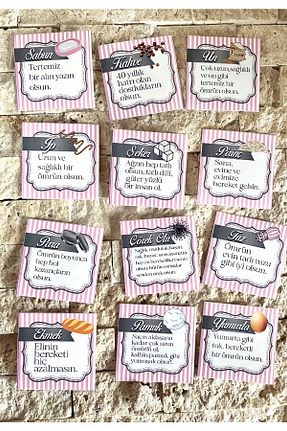 Sabun
Tertemiz
bir alın yazın
olsun.
Kahve
40 yıllık
hatrı olan
dostlukların
olsun.
Un
Çok uzun,sağlıklı
ve un gibi
tertemiz bir
ömrün olsun.
İp
Uzun ve
sağlıklı bir
ömrün olsun.
Şeker
Ağzın hep tatlı
olsun, tatlı dilli,
güler yüzlü
bir insan ol.
Pirinç
Sana,
evine ve
evimize
bereket gelsin.
Para
Ömrün boyunca
hep bol
kazançların
olsun.
Çörek Otu
Tuz
Ömrün
evin tadı tuzu
gibi iyi olsun.
Ekmek
Elinin
bereketi
hiç
azalmasın.
Pamuk
Saçın aklaşana
kadar çok uzun
ömürlü ol,
kalbin pamuk gibi
yumuşak olsun.
Yumurta
Yumurta gibi
tok, bereketli
bir ömrün olsun.